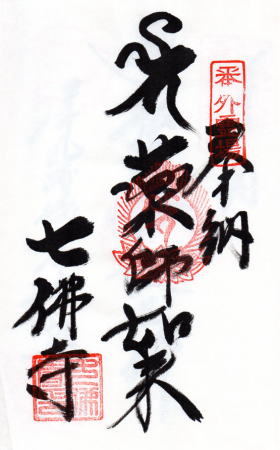 奉納
番外霊場
薬師如来
七佛寺